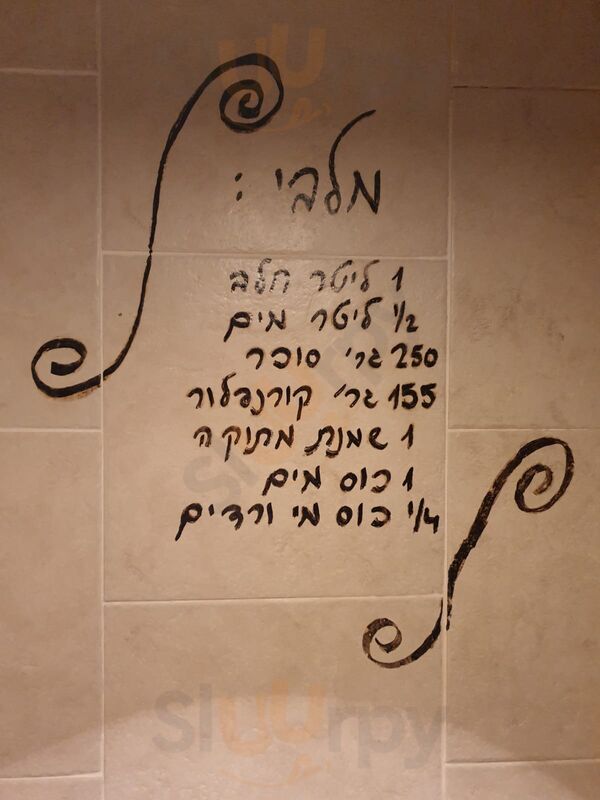 Sluurpy
מלבי :
1 ליטר חלב
1/2 ליטר מים
250 גר' סוכר
155 גר' קורנפלור
1 שמנת מתוקה
1 כוס מים
1/4 כוס מי ורדים
Sluurpy
Sluurpy